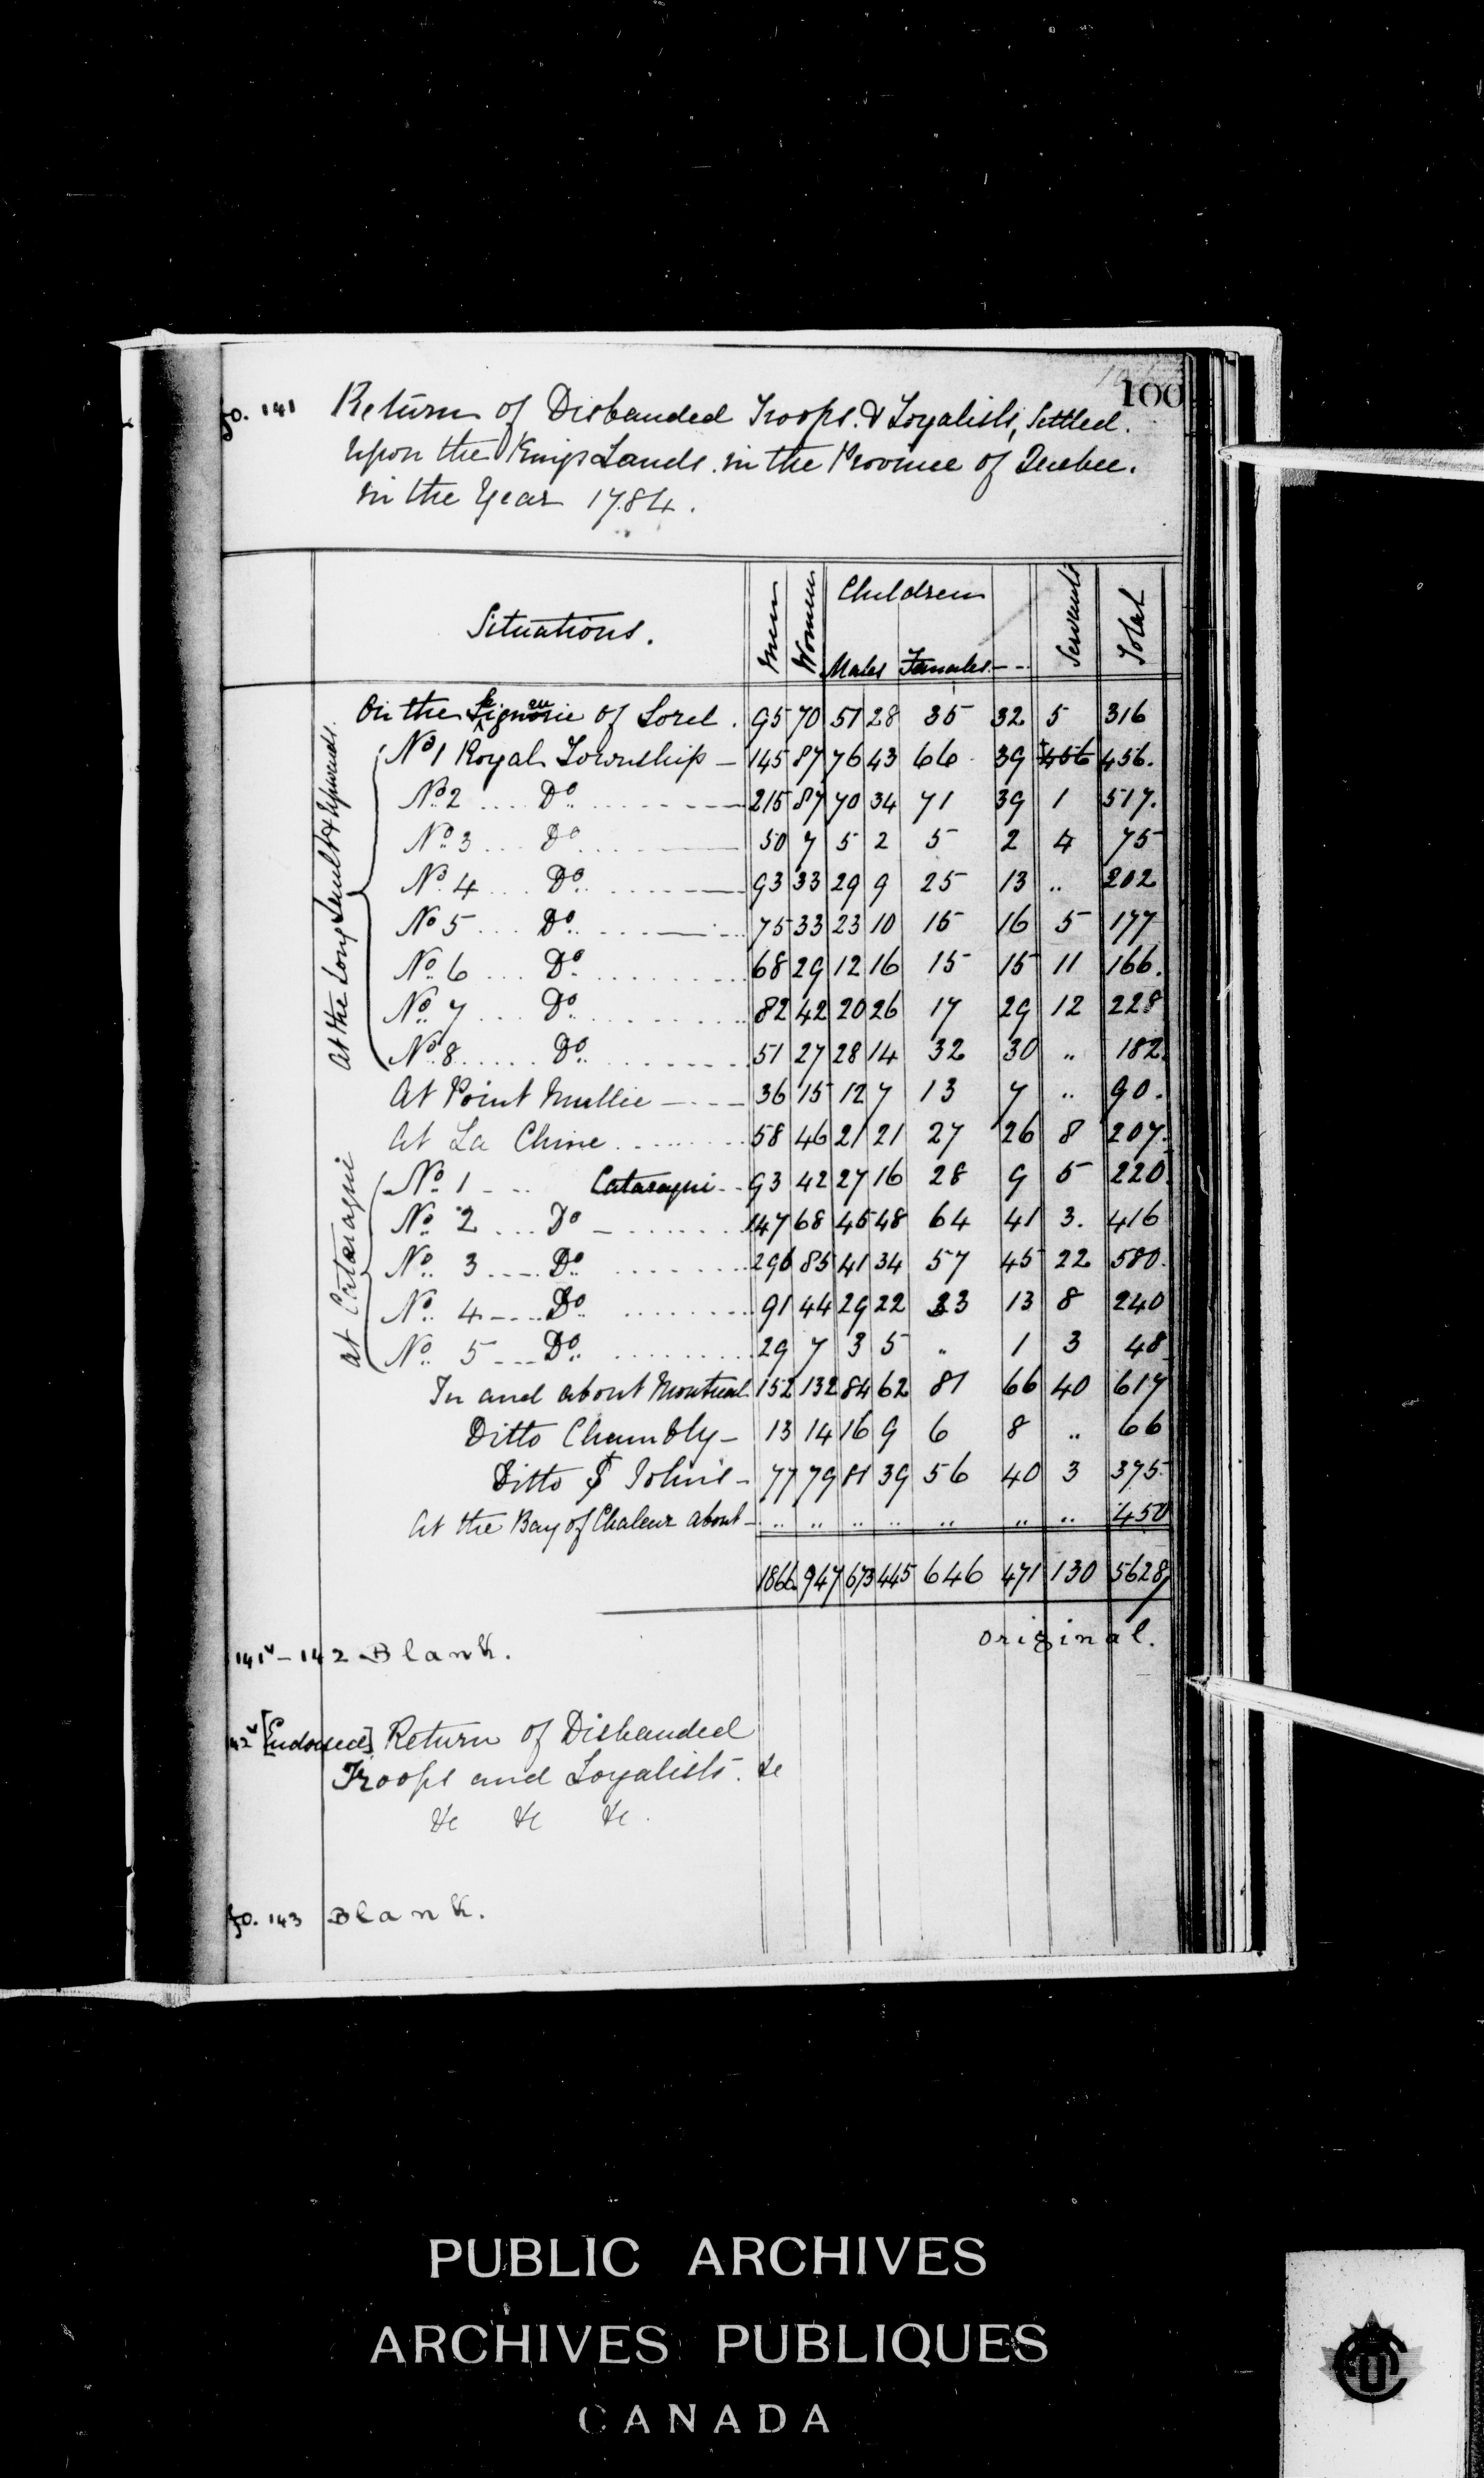 100
fo. 141 Return of Disbanded Troops. & Loyalists, Settled.
Upon the Kings Lands. in the Province of Quebec.
in the Year 1784.
Situations. Men Women Children Servants Total
Males Females
On the Seigneurie of Sorel. 95 70 51 28 35 32 5 316
At the Long Sault & Upwards.
No 1 Royal Township — 145 87 76 43 66 39 456 456.
No. 2 .... Do. ........ 215 87 70 34 71 39 1 517.
No. 3 ... Do ..... 50 7 5 2 5 2 4 75
No. 4 ... Do. ..... 93 33 29 9 25 13 .. 202
No 5 ... Do. ..... 75 33 23 10 15 16 5 177
No. 6 ... Do. ........ 68 29 12 16 15 15 11 166.
No. 7 ... Do. ........ 82 42 20 26 17 29 12 228
No. 8 ..... Do. ........ 51 27 28 14 32 30 .. 182.
At Point Mullie — 36 15 12 7 13 7 .. 90.
At La Chine ........ 58 46 21 21 27 26 8 207.
At Cataraqui
No. 1 - .. Cataraqui .. 93 42 27 16 28 9 5 220.
No. 2 ... Do - ....... 147 68 45 48 64 41 3. 416
No. 3 .... Do. ....... 296 85 41 34 57 45 22 580.
No. 4 .... Do. ....... 91 44 29 22 33 13 8 240
No. 5 --- Do. ........ 29 7 3 5 .. 1 3 48
In and about Montreal 152 132 84 62 81 66 40 617
Ditto Chambly - 13 14 16 9 6 8 .. 66
Ditto St John's - 77 79 81 39 56 40 3 375
At the Bay of Chaleur about - .. .. .. .. .. .. .. 450
1866 947 673 445 646 471 130 5628
original.
141v - 142 Blank.
42v [Endorsed] Return of Disbanded
Troops and Loyalists. &c
&c &c &c.
fo. 143 Blank.
PUBLIC ARCHIVES
ARCHIVES PUBLIQUES
CANADA